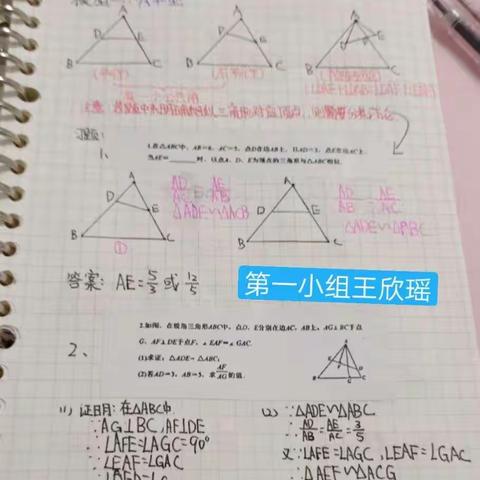 A
D E
B C
(平行)
A
D E
B C
(不平行)
A
D E
B C
注意：
三角形对应顶点，则需要分类讨论
习题：
1、
1.在△ABC中，AB=6，AC=5，点D在边AB上，且AD=2，点E在边AC上，
当AE=______时，以点A、D、E为顶点的三角形与△ABC相似.
A
D
E
B C
①
AD/AC = AE/AB
△ADE∽△ACB
A
D E
B C
AD/AB = AE/AC
△ADE∽△ABC
答案：AE=5/3或12/5
第一小组王欣瑶
2、
2.如图，在锐角三角形ABC中，点D、E分别在边AC、AB上，AG⊥BC于点
G，AF⊥DE于点F，∠EAF=∠GAC.
(1)求证：△ADE∽△ABC；
(2)若AD=3，AB=5，求AF/AG的值.
(1) 证明：在△ABC中
∵AG⊥BC,AF⊥DE
∴∠AFE=∠AGC=90°
∵∠EAF=∠GAC
(2) ∵△ADE∽△ABC
∴AD/AB=AE/AC=3/5
又∵∠AFE=∠AGC,∠EAF=∠GAC
∴△AEF∽△ACG